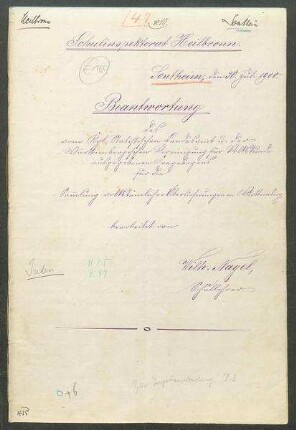 Heilbronn
147
Sontheim
Schulinspektorat Heilbronn.
Sontheim, den 31. Juli 1900.
Beantwortung
des
vom Kgl. Statistischen Landesamt u. der
Württembergischen Vereinigung für Volkskunde
ausgegebenen Fragebogens
für die
Sammlung volkstümlicher Überlieferungen in Württemberg
bearbeitet von
Wilh. Nagel,
Schullehrer
Juden